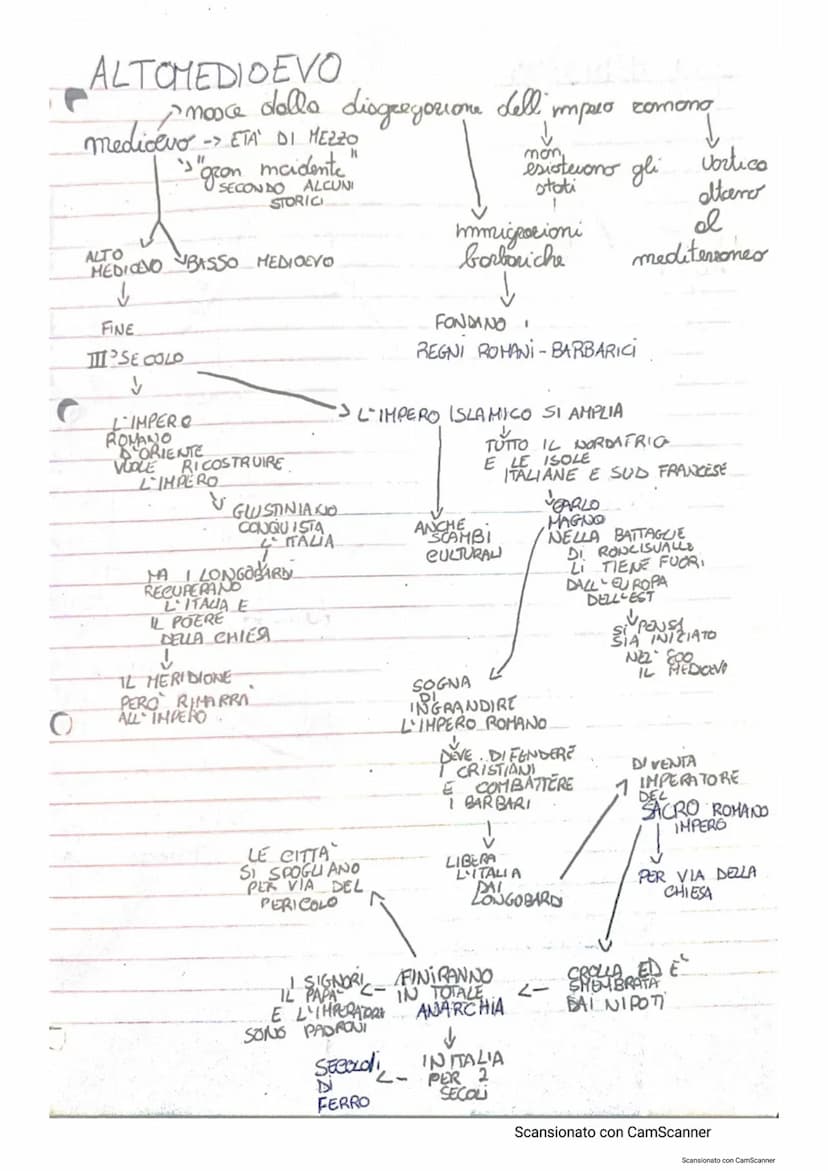 ALTOMEDIOEVO
nasce dalla disgregazione dell'impero romano
medioevo -> ETA' DI MEZZO
"gran incidente"
SECONDO ALCUNI
STORICI
non
esistevano gli
stati
vortica
attorno
al
mediterraneo
immigrazioni
barbariche
ALTO
MEDIOEVO
BASSO MEDIOEVO
FINE
III° SECOLO
FONDANO I
REGNI ROMANI-BARBARICI
L'IMPERO
ROMANO
D'ORIENTE
VUOLE RICOSTRUIRE
L'IMPERO
GIUSTINIANO
CONQUISTA
L'ITALIA
MA I LONGOBARDI
RECUPERANO
L'ITALIA E
IL POTERE
DELLA CHIESA
IL MERIDIONE
PERO' RIMARRÀ
ALL'IMPERO
L'IMPERO ISLAMICO SI AMPLIA
TUTTO IL NORDAFRICA
E LE ISOLE
ITALIANE E SUD FRANCESE
ANCHE
SCAMBI
CULTURALI
CARLO
MAGNO
NELLA BATTAGLIE
DI RONCISVALLE
LI TIENE FUORI
DALL'EUROPA
DELL'EST
SI PENSA
SIA INIZIATO
NELL'800
IL MEDIOEVO
SOGNA
DI
INGRANDIRE
L'IMPERO ROMANO
DEVE DIFENDERE
I CRISTIANI
E COMBATTERE
I BARBARI
LIBERA
L'ITALIA
DAI
LONGOBARDI
DIVENTA
IMPERATORE
DEL
SACRO ROMANO
IMPERO
PER VIA DELLA
CHIESA
CROLLA ED E'
SMEMBRATA
DAI NIPOTI
FINIRANNO
IN TOTALE
ANARCHIA
LE CITTA'
SI SPOGLIANO
PER VIA DEL
PERICOLO
I SIGNORI
IL PAPA
E L'IMPERATORE
SONO PADRONI
IN ITALIA
PER 2
SECOLI
SECOLI
DI
FERRO
Scansionato con CamScanner
Scansionato con CamScanner